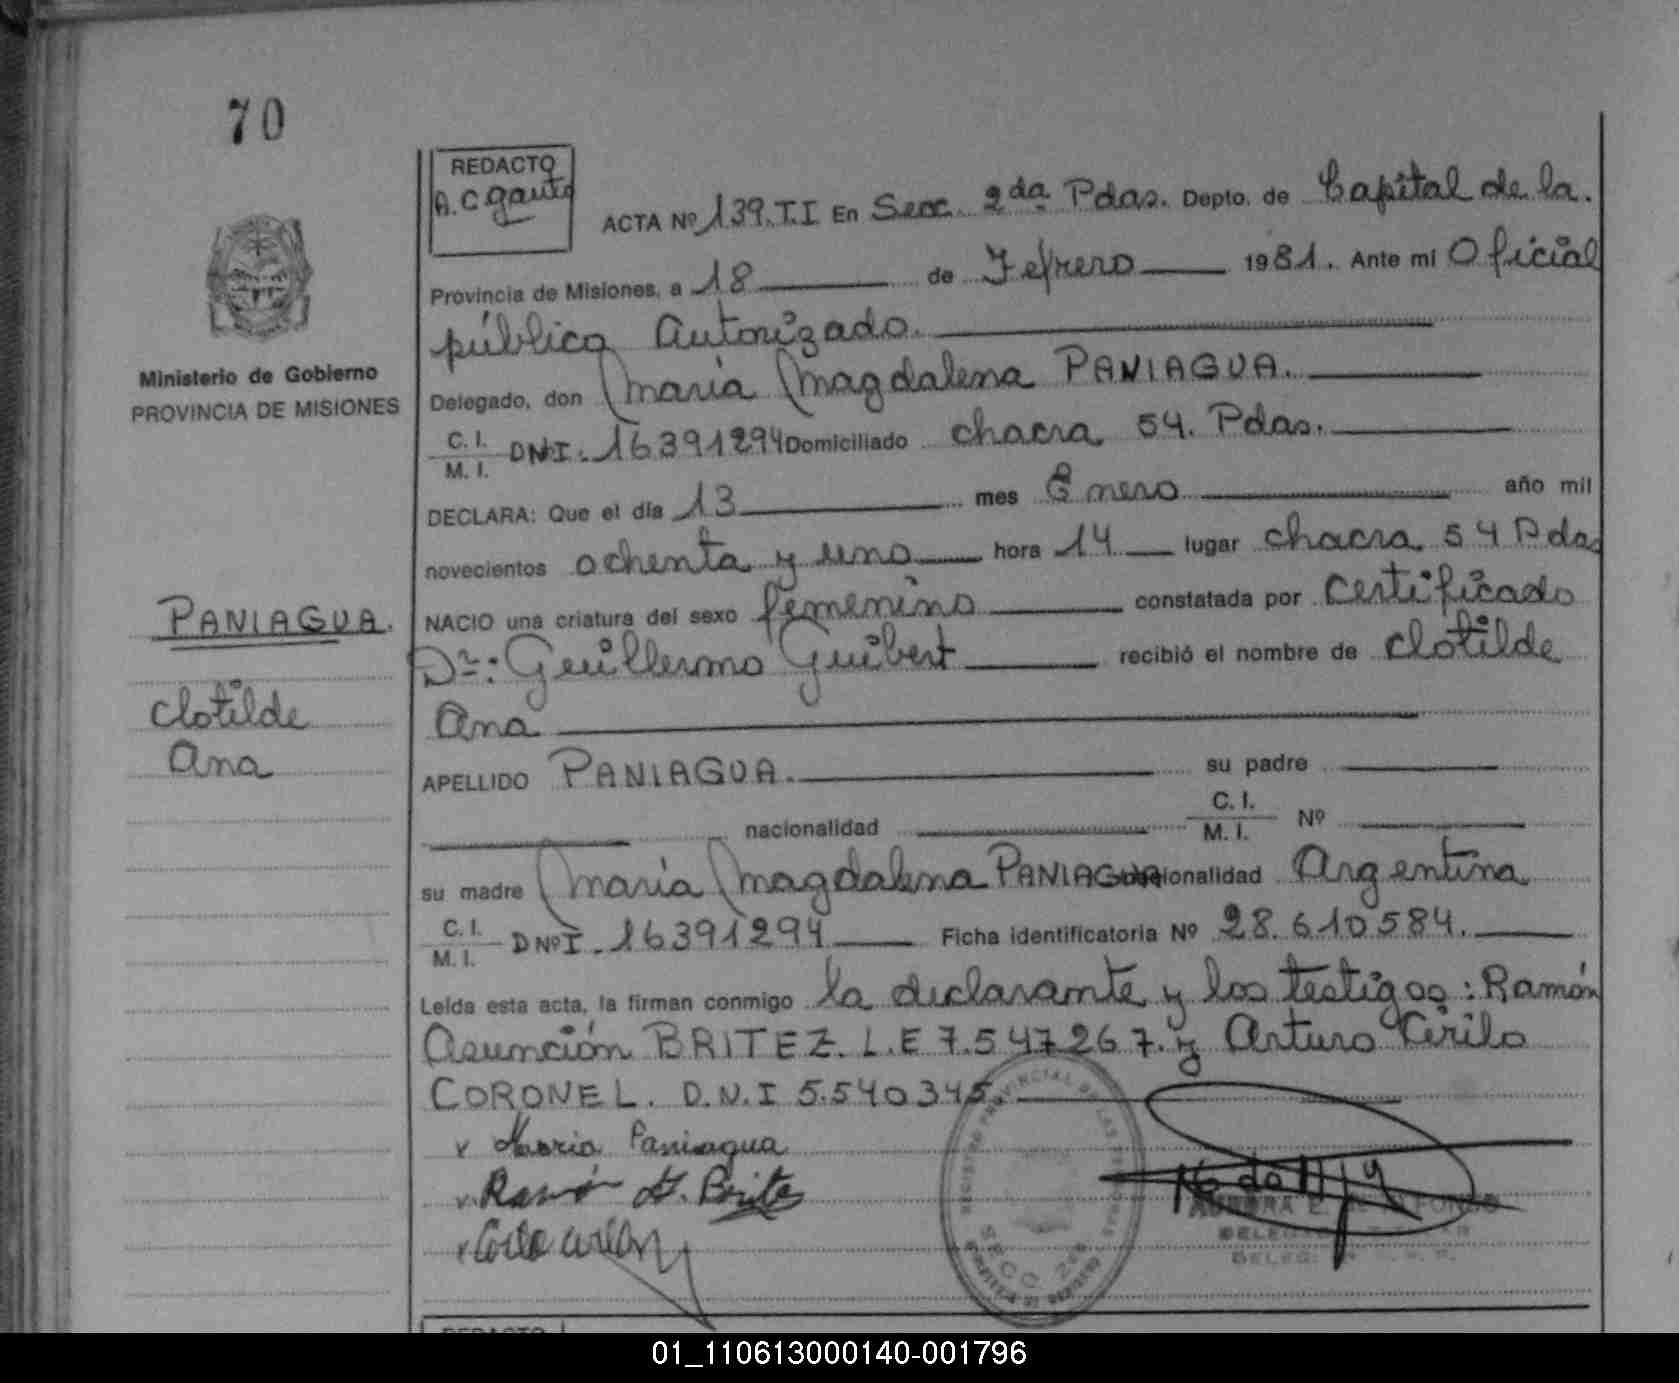 70
REDACTO
A.C gauto
ACTA Nº 139.T.I En Secc. 2da Pdas. Depto. de Capital de la.
Provincia de Misiones, a 18 de Febrero 1981. Ante mi Oficial
público Autorizado.
Ministerio de Gobierno
PROVINCIA DE MISIONES
Delegado, don María Magdalena PANIAGUA.
C. I.
M. I. DNI. Nº 16391294 Domiciliado chacra 54. Pdas.
DECLARA: Que el día 13 mes Enero año mil
novecientos ochenta y uno hora 14 lugar chacra 54 Pdas
PANIAGUA.
Clotilde
Ana
NACIO una criatura del sexo femenino constatada por Certificado
Dr: Guillermo Guibert recibió el nombre de Clotilde
Ana
APELLIDO PANIAGUA. su padre
nacionalidad C. I. M. I. Nº
su madre María Magdalena PANIAGUA nacionalidad Argentina
C. I.
M. I. DNI. Nº 16391294 Ficha identificatoria Nº 28.610584.
Leída esta acta, la firman conmigo la declarante y los testigos: Ramón
Asunción BRITEZ. L.E 7.547267. y Arturo Cirilo
CORONEL. D.N.I 5.540345.
REGISTRO PROVINCIAL DE LAS PERSONAS
SECC. 2da
v María Paniagua
v Ramón A. Brites
REDACTO
01_110613000140-001796